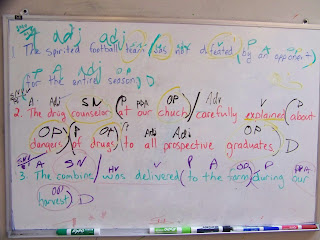 A adj adj
1. The spirited football team/was not defeated (by an opponent)
P A adj OP
(for the entire season.) D
A Adj SN P PPA OP Adv V P
2. The drug counselor (at our church)/carefully explained (about
OP P OP P Adj Adj OP
dangers) (of drugs) (to all prospective graduates.) D
A SN HV V P A OP P PPA
3. The combine/was delivered (to the farm) (during our
OP
harvest.) D